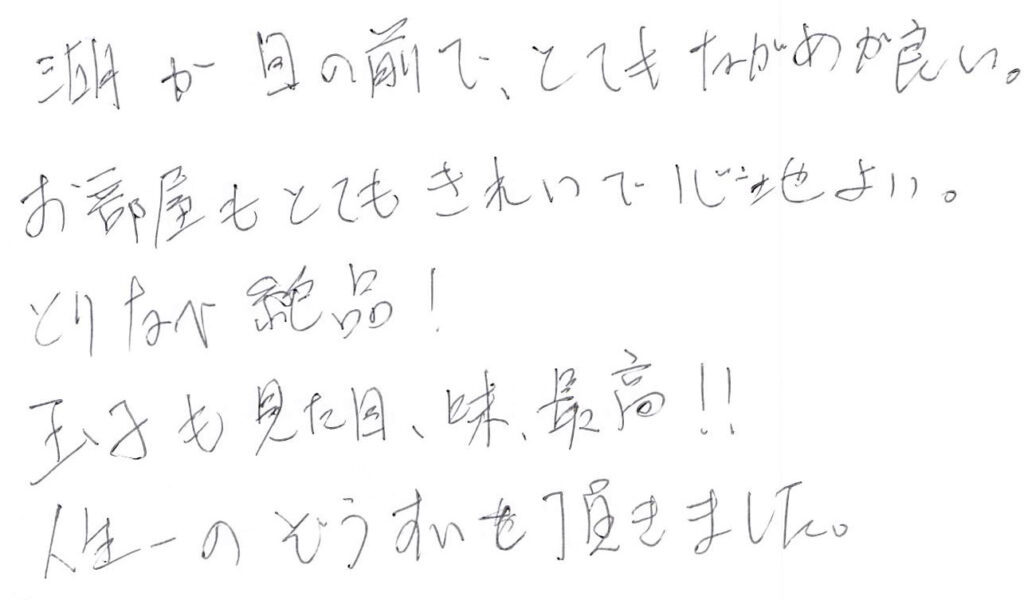 湖が目の前で、とてもながめが良い。
お部屋もとてもきれいで心地よい。
とりなべ絶品！
玉子も見た目、味、最高!!
人生一のぞうすいを頂きました。